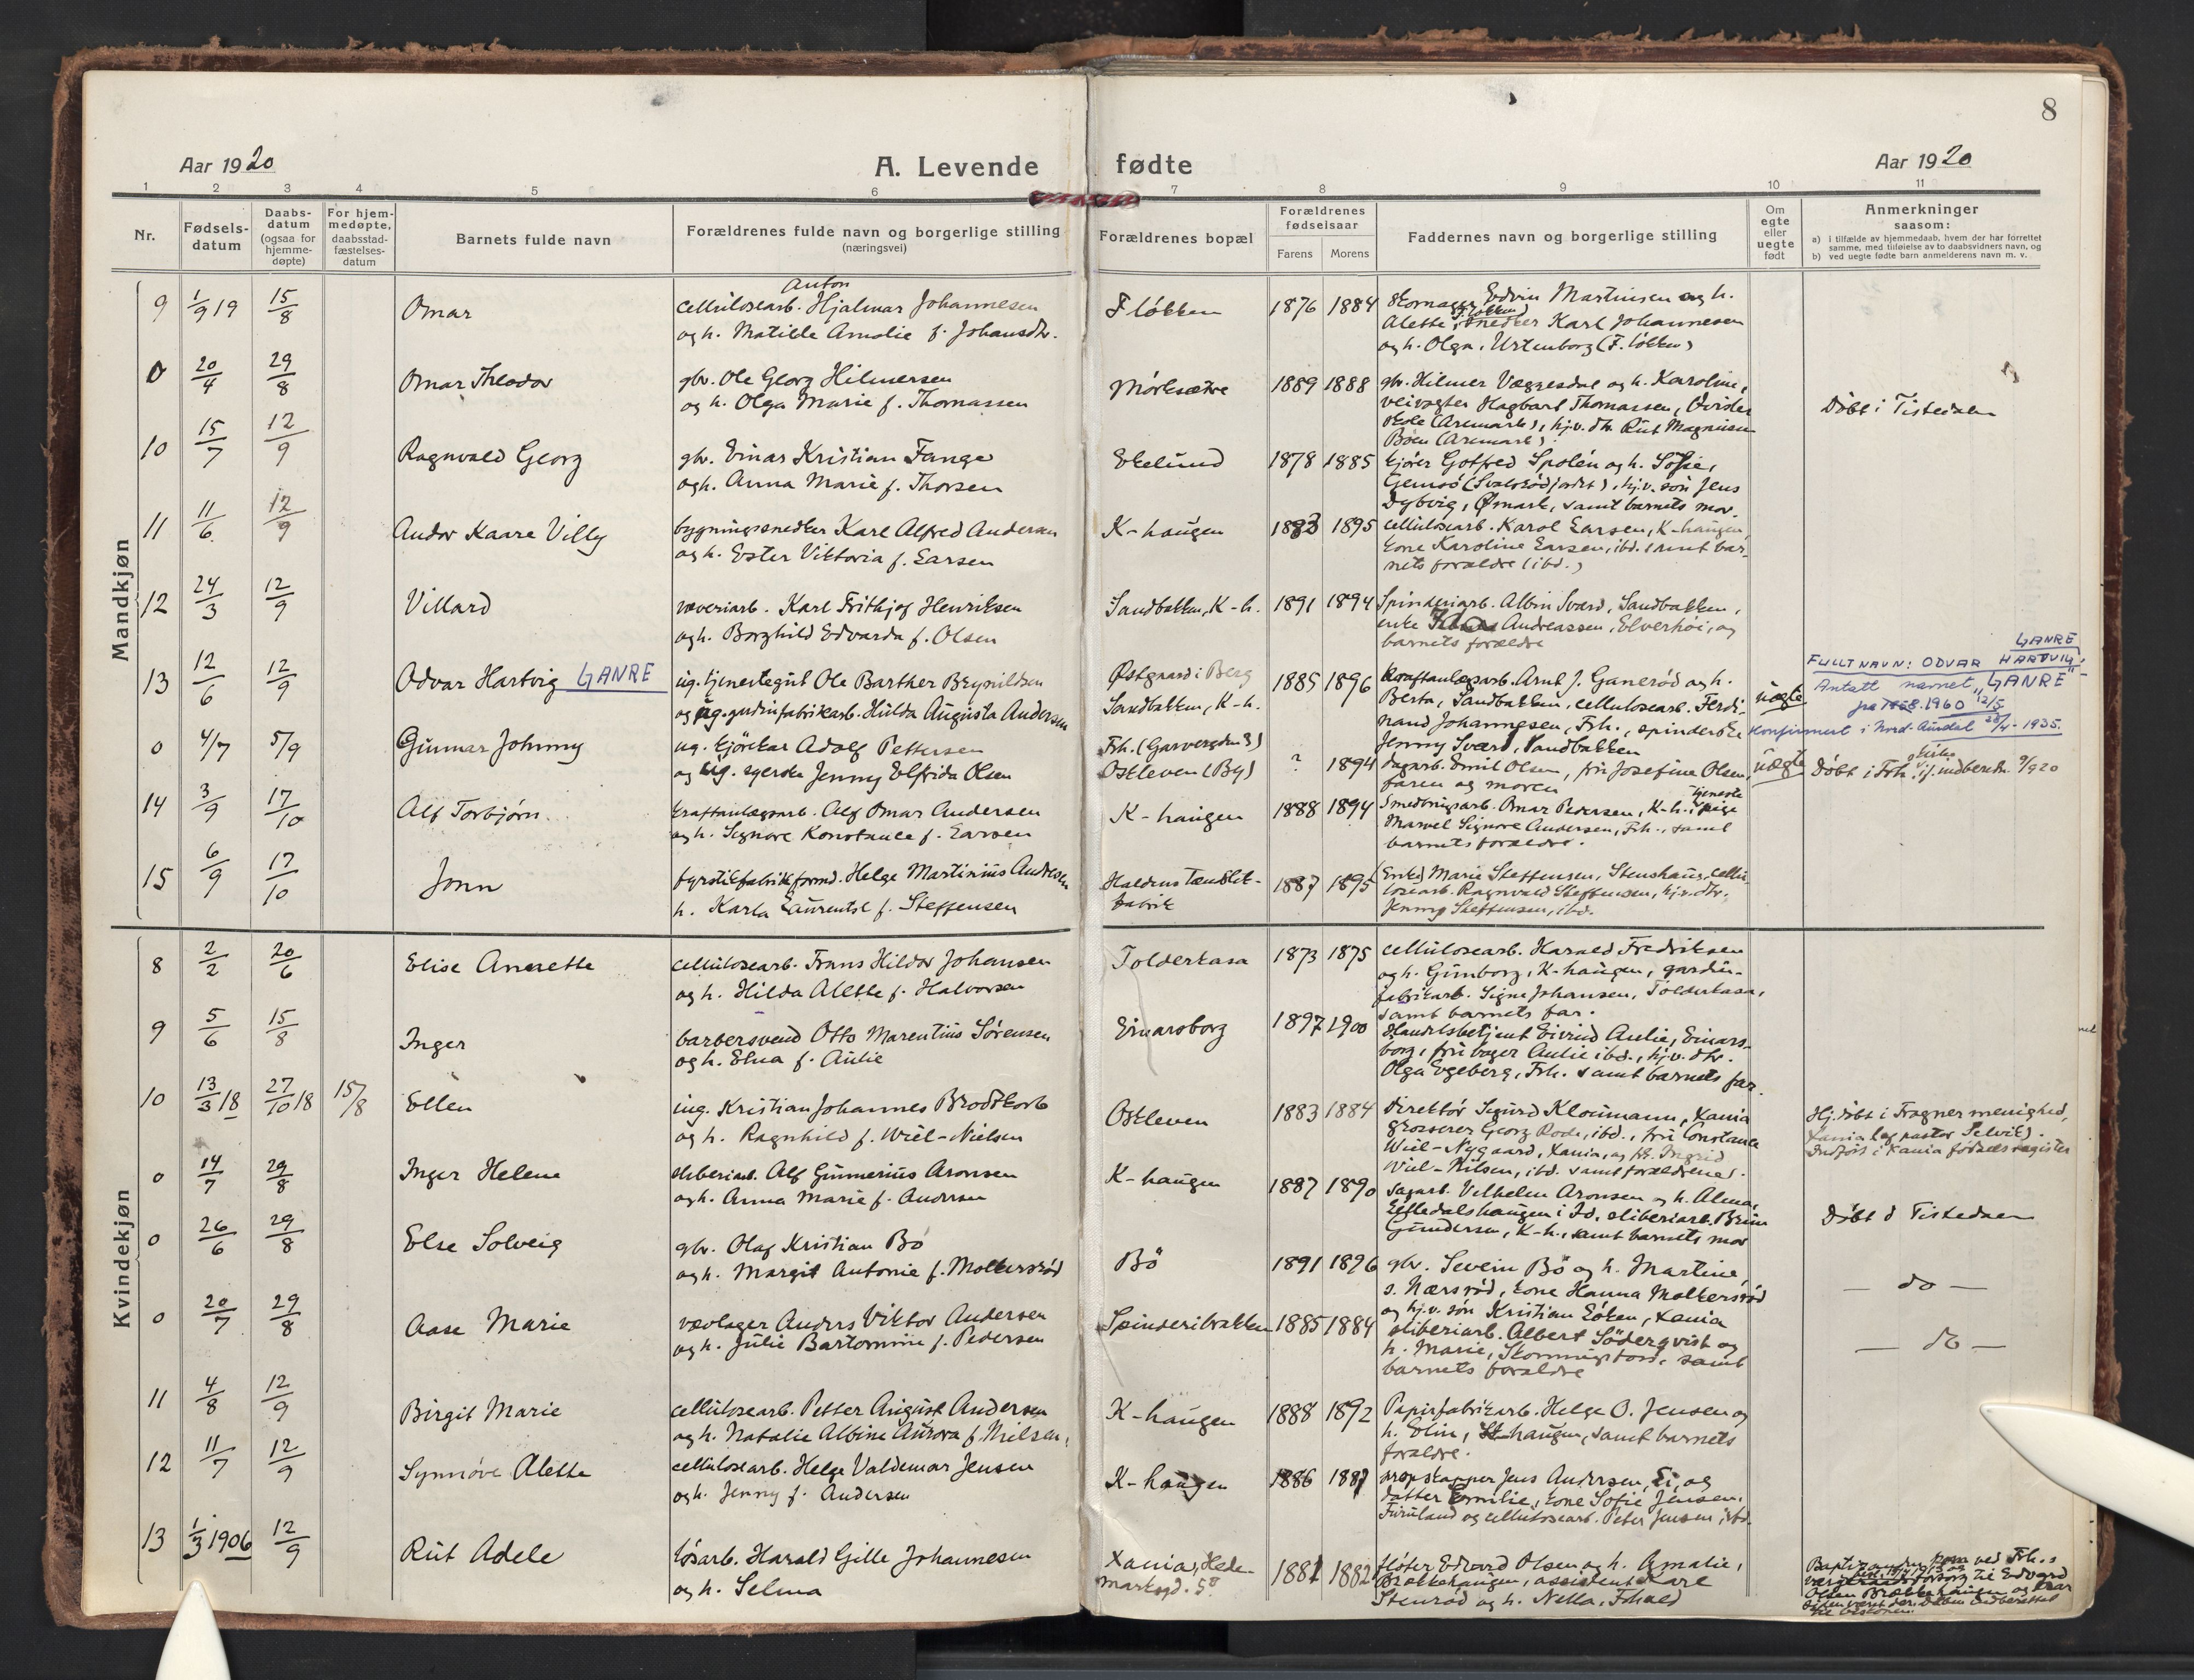 8
Aar 1920
A. Levende fødte
Aar 1920
1 2 3 4 5 6 7 8 9 10 11
Nr.
Fødsels-datum
Daabs-datum (ogsaa for hjemme-døpte)
For hjem-medøpte, daabsstad-fæstelses-datum
Barnets fulde navn
Forældrenes fulde navn og borgerlige stilling (næringsvei)
Forældrenes bopæl
Forældrenes fødselsaar
Farens Morens
Faddernes navn og borgerlige stilling
Om egte eller uegte født
Anmerkninger saasom:
a) i tilfælde av hjemmedaab, hvem der har forrettet samme, med tilføielse av to daabsvidners navn, og
b) ved uegte fødte barn anmelderens navn m. v.
Mandkjøn
9 1/9 19 15/8 Omar
Anton
cellulosearb. Hjalmar Johannesen
og h. Matilde Amalie f. Johansdtr.
Fløkken 1876 1884
skomager Edvin Martinsen og h.
Alette (Fløkken), snedker Karl Johannesen
og h. Olga, Urtenborg (Fløkken)
0 20/4 29/8 Omar Theodor
gbr. Ole Georg Hilmersen
og h. Olga Marie f. Thomassen
Mörksætre 1889 1888
gbr. Hilmer Væggesdal og h. Karoline,
veivogter Hagbart Thomassen,
skole (Aremark), hj.v. dtr. Rut Magnussen
Böen (Aremark).
Döbt i Tistedalen
10 15/7 12/9 Ragnvald Georg
gbr. Einar Kristian Fange
og h. Anna Marie f. Thorsen
Ekelund 1878 1885
kjører Gotfred Spolén og h. Sofie,
hj.v. sön Jens
Dybvig, Ømark, samt barnets mor.
11 11/6 12/9 Andor Kaare Villy
bygningssnedker Karl Alfred Andersen
og h. Ester Viktoria f. Larsen
K-haugen 1883 1895
cellulosearb. Karol Larsen, K-haugen,
kone Karoline Larsen, ibd. samt bar-
nets forældre (ibd.)
12 24/3 12/9 Villard
væveriarb. Karl Frithjof Henriksen
og h. Borghild Edvarda f. Olsen
Sandbakken, K-h. 1891 1894
Spinderiarb. Albin Svard, Sandbakken,
enke Ida Andreassen, Elverhöi, og
barnets forældre
13 12/6 12/9 Odvar Hartvig GANRE
ug. tjenestegut Ole Barther Brynildsen
og ug. gardinfabrikarb. Hulda Augusta Andersen
Østgaard i Berg
Sandbakken, K-h. 1885 1896
Kraftanlægsarb. Arnt J. Ganerød og h.
Berta, Sandbakken, cellulosearb. Ferdi-
nand Johannesen, Frh., spinderske
Jenny Svard, Sandbakken
uegte
FULLT NAVN: ODVAR HARTVIG GANRE
Antatt navnet "GANRE"
1960 12/5
Konfirmert i Nord-Aurdal 28/4-1935.
0 4/7 5/9 Gunnar Johnny
ug. kjörekar Adolf Pettersen
og ug. syerske Jenny Elfrida Olsen
Frh. (Garvergdn 3)
Oskleven (By) ? 1894
dagarb. Emil Olsen, fru Josefine Olsen,
faren og moren
uegte
Döbt i Frh. kirke if. indberetn. 9/9 20
14 3/9 17/10 Alf Torbjörn.
kraftanlægsarb. Alf Omar Andersen
og h. Signore Konstance f. Larsen
K-haugen 1888 1894
Smedningsarb. Omar Pedersen, K-h., tjenestepige
Marvel Signore Andersen, Frh., samt
barnets forældre.
15 6/9 17/10 Jonn
fyrstikfabrikformd. Helge Martinius Andersen
h. Karla Laurentse f. Steffensen
Haldens Tændstik-
fabrik 1887 1895
Enke Marie Steffensen, Stenshaug, cellu-
losearb. Ragnvald Steffensen, hj.v. dtr.
Jenny Steffensen, ibd.
Kvindekjøn
8 2/2 20/6 Elise Annette
cellulosearb. Frans Hildor Johansen
og h. Hilda Alette f. Halvorsen
Tolderkasa 1873 1875
cellulosearb. Harald Fredriksen
og h. Gunborg, K-haugen, gardin-
fabrikarb. Signe Johansen, Tolderkasa,
samt barnets far.
9 5/6 15/8 Inger
barbersvend Otto Marentius Sörensen
og h. Elna f. Aulie
Einarsborg 1897 1900
Handelsbetjent Eivind Aulie, Einars-
borg, fru bager Aulie ibd., hj.v. dtr.
Olga Egeberg, Frh. samt barnets far
10 13/3 18 27/10 18 15/8 Ellen
ing. Kristian Johannes Brodtkorb
og h. Ragnhild f. Wiel-Nielsen
Oskleven 1883 1884
direktör Sigurd Kloumann, Xania
grosserer Georg Rode, ibd., fru Constance
Wiel-Nygaard, Xania, og frk. Ingrid
Wiel-Nilsen, ibd. samt forældrene.
Hj.döbt i Fragner menighed,
Xania (af pastor Selvik).
Indfört i Xania födselsregister
0 14/7 29/8 Inger Helene
sliberiarb. Alf Gunnerius Aronsen
og h. Anna Marie f. Andersen
K-haugen 1887 1890
sagarb. Vilhelm Aronsen og h. Alma,
haugen i Id, sliberiarb.
Gundersen, K-h., samt barnets mor
Döbt i Tistedalen
0 26/6 29/8 Else Solveig
gbr. Olaf Kristian Bö
og h. Margit Antonie f. Molkersröd
Bö 1891 1896
gbr. Severin Bö og h. Martine,
s. Næsröd, kone Hanna Molkersröd
og hj.v. sön Kristian Löken, Xania
— do —
0 20/7 29/8 Aase Marie
vævlager Anders Viktor Andersen
og h. Julie Bartomine f. Pedersen
Spinderibakken 1885 1884
sliberiarb. Albert Söderqvist og
h. Marie, Skonningsfoss, samt
barnets forældre
— do —
11 4/8 12/9 Birgit Marie
cellulosearb. Petter August Andersen
og h. Natalie Albine Aurora f. Nilsen,
K-haugen 1888 1892
Papirfabrikarb. Helge O. Jensen og
h. Elin, K-haugen, samt barnets
forældre.
12 11/7 12/9 Synnöve Alette
cellulosearb. Helge Valdemar Jensen
og h. Jenny f. Andersen
K-haugen 1886 1887
propskapper Jens Andersen, Ei, og
datter Emilie, kone Sofie Jensen,
Furuland og cellulosearb. Peter Jensen ibd.
13 1/3 1906 12/9 Rut Adele
lösarb. Harald Gille Johannesen
og h. Selma
Xania, Hede-
marksgd. 5 II 1881 1882
fløter Edvard Olsen og h. Amalie,
Brækkehaugen, assistent Karl
Stenröd og h. Nella, Fohald
ved Frh.s
til Edvard
Olsen Brækkehaugen og har